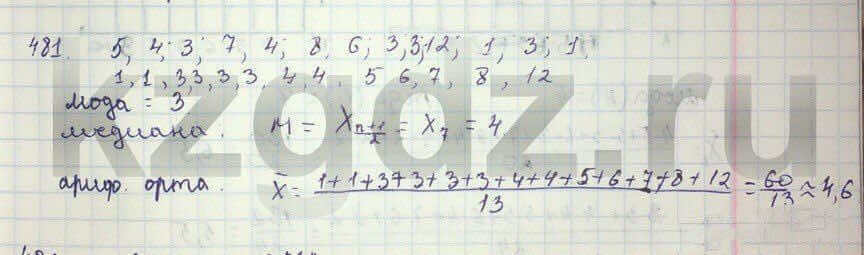 481. 5, 4; 3; 7, 4; 8, 6; 3,3;12; 1; 3; 1,
1, 1, 3,3,3,3, 4,4, 5 6,7, 8, 12
мода = 3
медиана. M = X_{\frac{n+1}{2}} = X_7 = 4
арифо. орта. x̄ = \frac{1+1+3+3+3+3+4+4+5+6+7+8+12}{13} = \frac{60}{13} ≈ 4,6
kzgdz.ru